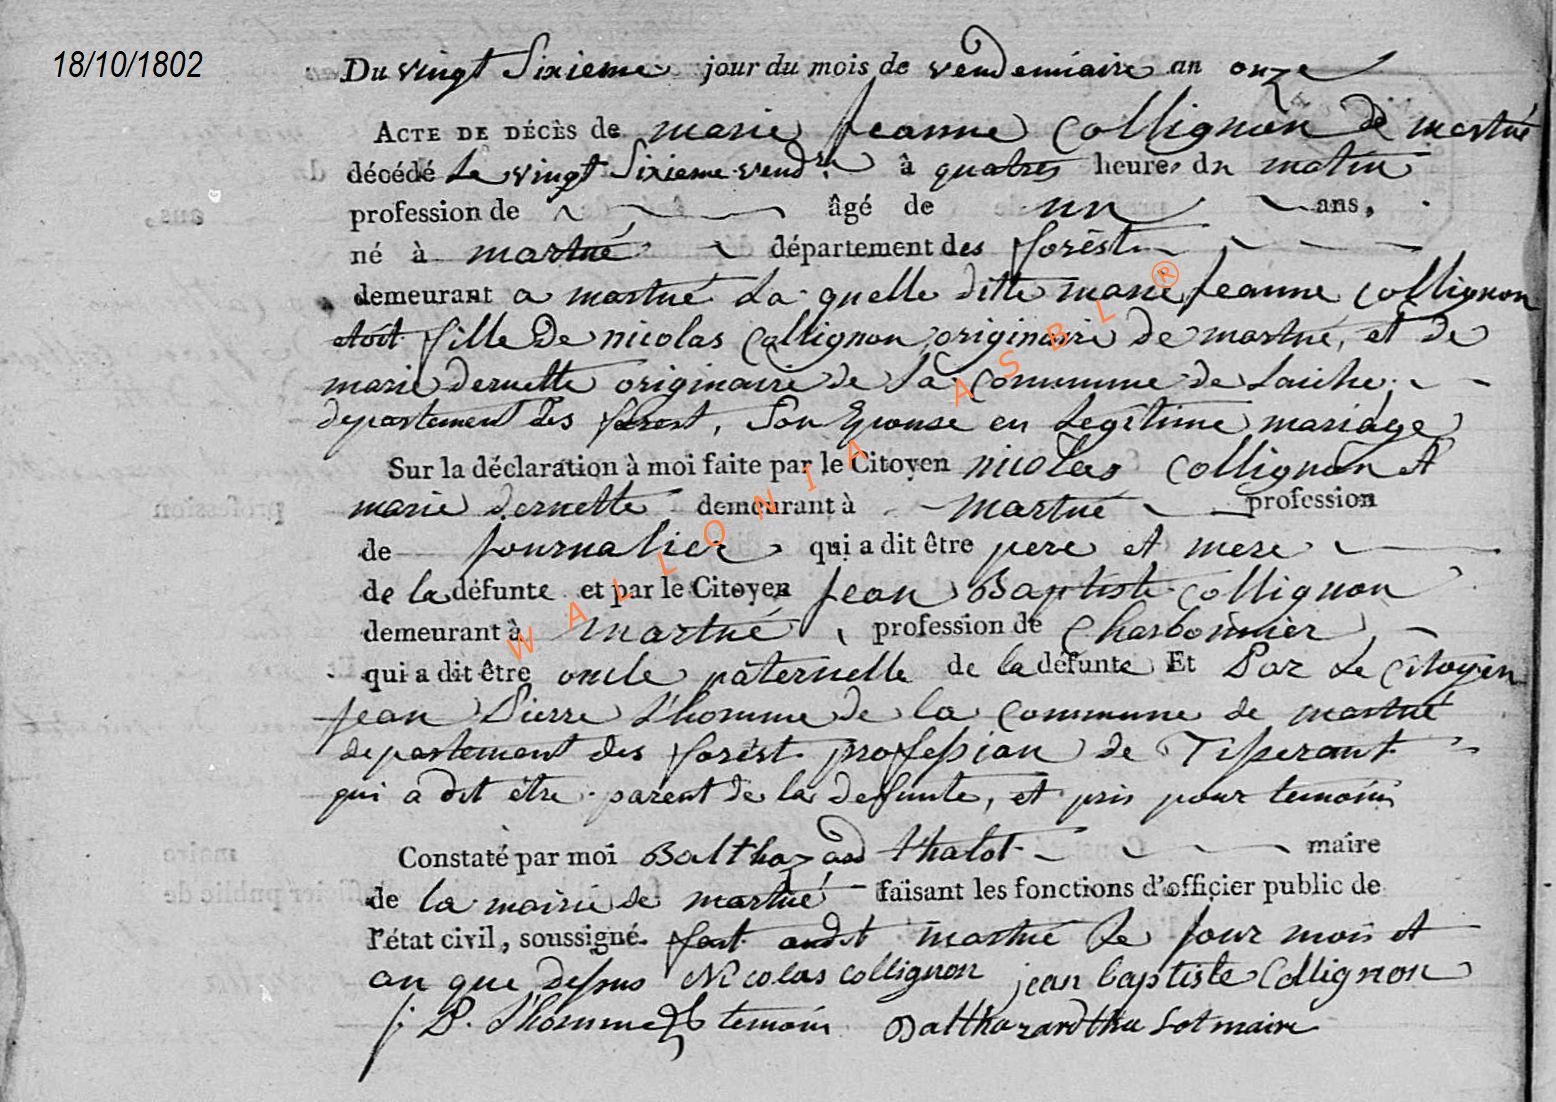 18/10/1802
Du vingt Sixieme jour du mois de vendemiaire an onze
ACTE DE DÉCÈS de marie jeanne Collignon de martué
décédé Le vingt Sixieme vend.re à quatres heures du matin
profession de âgé de un ans,
né à martué département des forêst
demeurant a martué La quelle ditte marie jeanne collignon
etoit fille de nicolas Collignon originaire de martué, et de
marie dernette originaire de la Commune de Laiche
departement des forest, Son Epouse en Legitime mariage
Sur la déclaration à moi faite par le Citoyen nicolas Collignon et
marie dernette demeurant à martué profession
de journalier qui a dit être pere et mere
de la défunte et par le Citoyen jean Baptiste Collignon
demeurant à martué, profession de Charbonnier,
qui a dit être oncle paternelle de la défunte Et Par Le Citoyen
jean Pierre L'homme de la Commune de martué
departement des forest profession de Tisserant
qui a dit être parent de la defunte, et pris pour temoin
Constaté par moi Balthazard thalot maire
de la mairie de martué faisant les fonctions d'officier public de
l'état civil, soussigné. fait audit martué Le jour mois et
an que dessus Nicolas collignon jean baptiste Collignon
j: P. L'homme temoin Balthazard thalot maire
WALLONIA ASBL ®